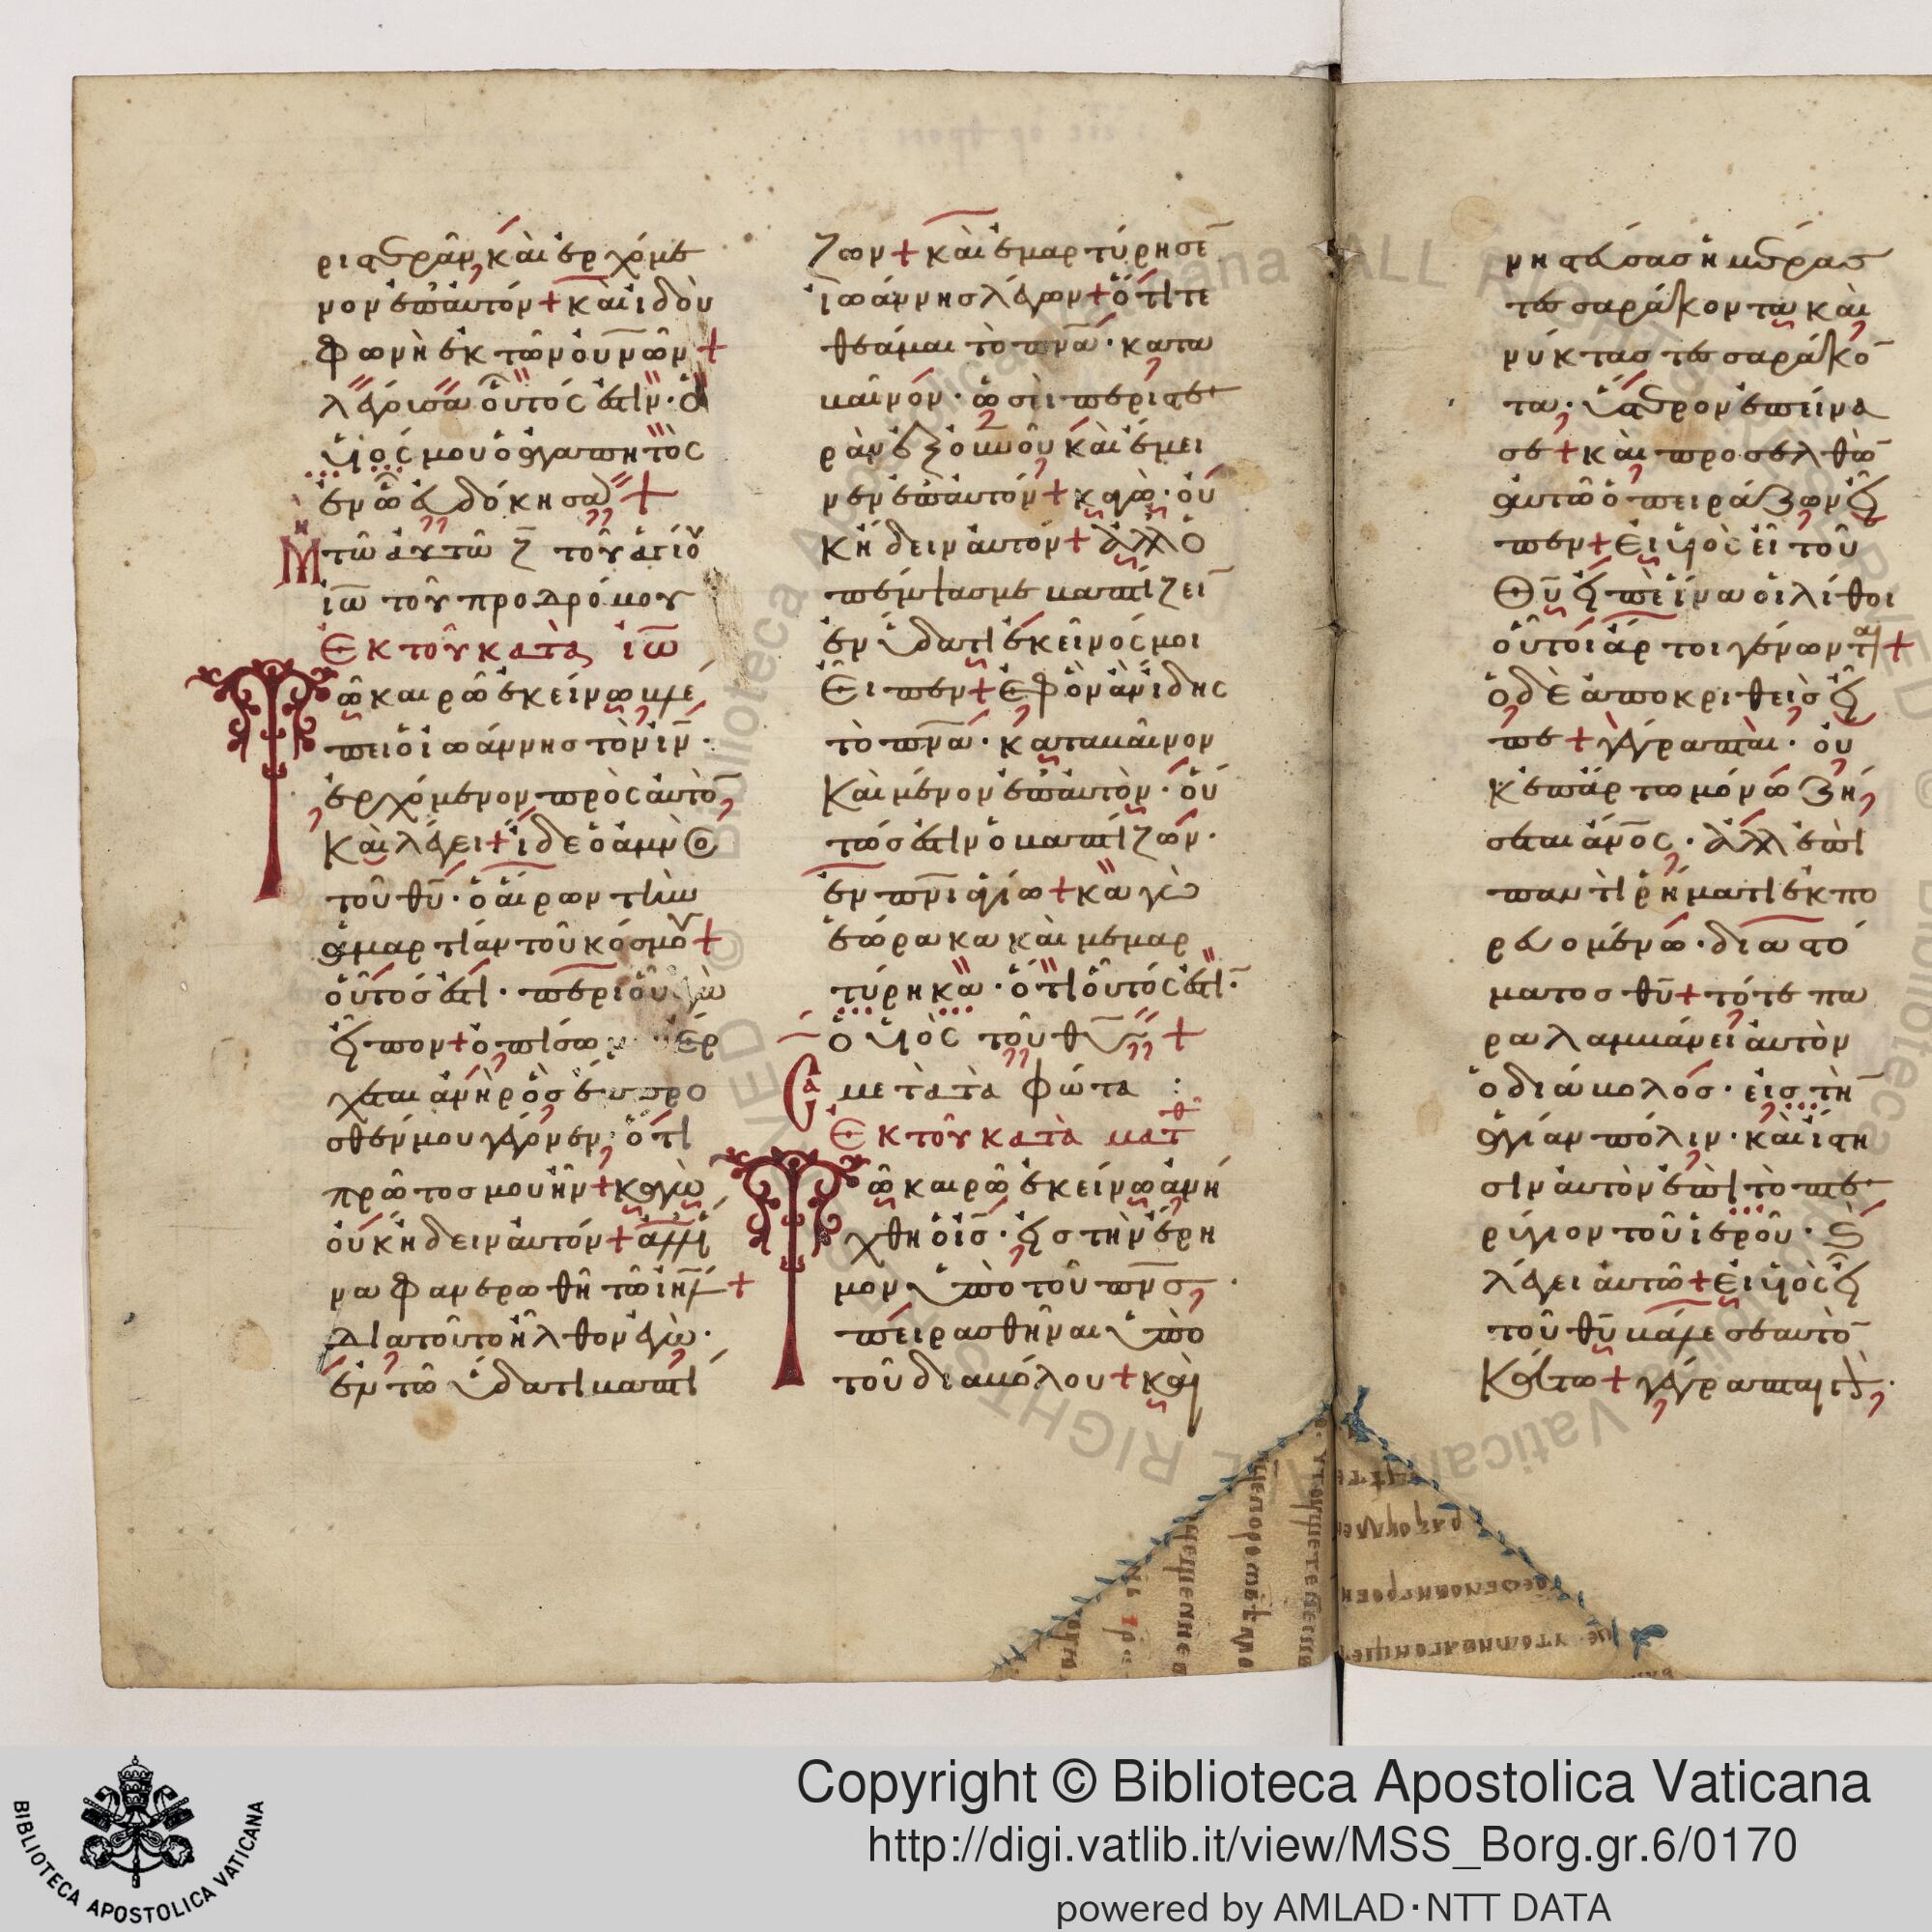 ριστερὰν, καὶ ἐρχόμε
νον ἐπ' αὐτόν + καὶ ἰδοὺ
φωνὴ ἐκ τῶν οὐνῶν +
λέγουσα οὗτός ἐστιν · ὁ
υἱός μου ὁ ἀγαπητὸς
ἐν ᾧ εὐδόκησα +
Μη τῶ αὐτῶ ζ τοῦ ἁγίου
ἰω τοῦ προδρόμου
Ἐκ τοῦ κατὰ ἰω
Τῶ καιρῶ ἐκείνω βλέ
πει ὁ ἰωάννησ τὸν ἰν ·
ἐρχόμενον πρὸς αὐτὸ
Καὶ λέγει + ἴδε ὁ ἀμνὸς
τοῦ θυ · ὁ αἴρων τὴν
ἁμαρτίαν τοῦ κόσμου +
οὗτόσ ἐστι · περὶ οὗ ἐγὼ
εἶπον + ὀπίσω ἔρ
χεται ἀνὴρ ὃσ ἔμπρο
σθέν μου γέγονεν, ὅτι
πρῶτοσ μου ἦν + κἀγὼ
οὐκ ἤδειν αὐτόν + ἀλλ' ἵ
να φανερωθῆ τῶ ἰηλ +
Διατοῦτο ἦλθον ἐγὼ ·
ἐν τῶ ὕδατι βαπτί
ζων + καὶ ἐμαρτύρησε
ἰωάννησ λέγων + ὅτι τε
θέαμαι τὸ πνα · κατα
βαῖνον · ὡσεὶ περιστε
ρὰν ἐξ οὐνοῦ καὶ ἔμει
νεν ἐπ' αὐτόν + κἀγὼ · οὐ
κ ἤδειν αὐτόν + ἀλλ' ὁ
πέμψασ με βαπτίζει
ἐν ὕδατι ἐκεῖνός μοι
εἶπεν + ἐφ' ὃν ἂν ἴδης
τὸ πνα · καταβαῖνον
Καὶ μένον ἐπ' αὐτὸν · οὗ
τόσ ἐστιν ὁ βαπτίζων ·
ἐν πνι ἁγίω + κἀγὼ
ἑώρακα καὶ μεμαρ
τύρηκα · ὅτι οὗτός ἐστι ·
ὁ υἱὸς τοῦ θυ +
Σα μετὰ τὰ φώτα :
Ἐκ τοῦ κατὰ ματθ
Τῶ καιρῶ ἐκείνω ἀνή
χθη ὁ ισ · εἰσ τὴν ἔρη
μον ὑπὸ τοῦ πνσ ·
πειρασθῆναι ὑπὸ
τοῦ διαβόλου + καὶ
νηστεύσασ ἡμέρασ
τεσαράκοντα καὶ
νύκτασ τεσαράκο
τα · ὕστερον ἐπείνα
σε + καὶ προσελθὼ
αὐτῶ ὁ πειράζων εἶ
πεν + εἰ υἱὸς εἶ τοῦ
Θυ εἰπὲ ἵνα οἱ λίθοι
οὗτοι ἄρτοι γένωνται +
ὁ δὲ ἀποκριθεὶσ εἶ
πε + γέγραπται · οὐ
κ ἐπ' ἄρτω μόνω ζή
σεται ἀνος · ἀλλ' ἐπὶ
παντὶ ῥήματι ἐκπο
ρευομένω · διὰ στό
ματοσ θυ + τότε πα
ραλαμβάνει αὐτὸν
ὁ διάβολόσ · εἰσ τὴ
ἁγίαν πόλιν · καὶ ἵστη
σιν αὐτὸν ἐπὶ τὸ πτε
ρύγιον τοῦ ἱεροῦ · καὶ
λέγει αὐτῶ + εἰ υἱὸς εἶ
τοῦ θυ βάλε σεαυτὸ
Κάτω + γέγραπται γὰρ ·
Copyright © Biblioteca Apostolica Vaticana
http://digi.vatlib.it/view/MSS_Borg.gr.6/0170
powered by AMLAD·NTT DATA
BIBLIOTECA APOSTOLICA VATICANA